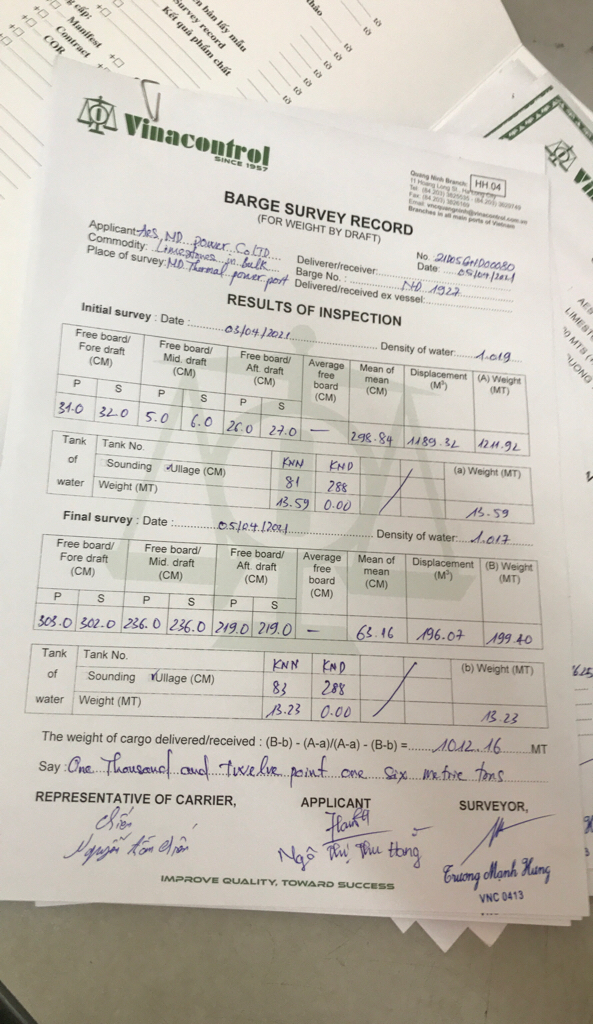 cấp:
Manifest
Contract
COR
bản lấy mẫu
Survey record
Kết quả phẩm chất
tờ
tờ
tờ
Vinacontrol
SINCE 1957
Quang Ninh Branch:
HH.04
11 Hoang Long St., Ha Long City
Branches in all main ports of Vietnam
BARGE SURVEY RECORD
(FOR WEIGHT BY DRAFT)
Applicant: AES, MD power Co LTD
Commodity: Limestones in bulk
Place of survey: MD Thermal power port
No. 21D05GHD00080
Deliverer/receiver: Date: 05/04/2021
Barge No. : NĐ 1927
Delivered/received ex vessel:
RESULTS OF INSPECTION
Initial survey : Date : 03/04/2021 Density of water: 1.019
Free board/ Fore draft (CM) Free board/ Mid. draft (CM) Free board/ Aft. draft (CM) Average free board (CM) Mean of mean (CM) Displacement (M³) (A) Weight (MT)
P S P S P S
31.0 32.0 5.0 6.0 26.0 27.0 — 298.84 1189.32 1211.92
Tank of water
Tank No. KNN KND (a) Weight (MT)
Sounding Ullage (CM) 81 288
Weight (MT) 13.59 0.00 13.59
Final survey : Date : 05/04/2021 Density of water: 1.017
Free board/ Fore draft (CM) Free board/ Mid. draft (CM) Free board/ Aft. draft (CM) Average free board (CM) Mean of mean (CM) Displacement (M³) (B) Weight (MT)
P S P S P S
303.0 302.0 236.0 236.0 219.0 219.0 — 63.16 196.07 199.40
Tank of water
Tank No. KNN KND (b) Weight (MT)
Sounding Ullage (CM) 83 288
Weight (MT) 13.23 0.00 13.23
The weight of cargo delivered/received : (B-b) - (A-a)/(A-a) - (B-b) = 1012.16 MT
Say : One Thousand and twelve point one six metric tons
REPRESENTATIVE OF CARRIER, APPLICANT SURVEYOR,
Ngô Thị Thu Hằng
Trương Mạnh Hùng
VNC 0413
IMPROVE QUALITY, TOWARD SUCCESS